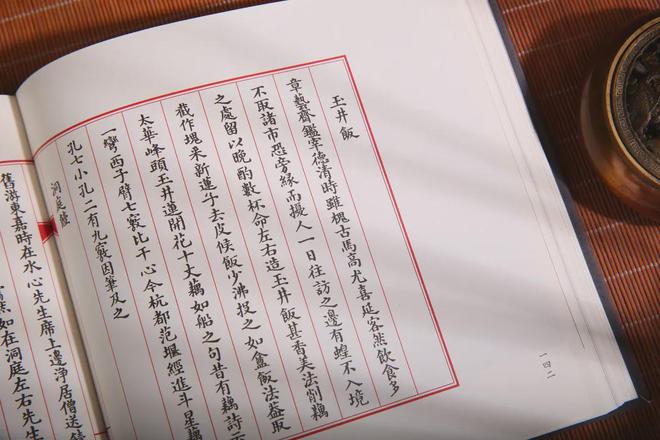 玉井飯
章藝齋鑑宰德清時雖槐古馬高尤喜延客然飲食多
不取諸市恐旁緣而擾人一日往訪之邊有蝗不入境
之處留以晚酌數杯命左右造玉井飯甚香美法削藕
截作塊采新蓮子去皮候飯少沸投之如盦飯法益取
太華峰頭玉井蓮開花十丈藕如船之句昔有藕詩云
一彎西子臂七竅比干心今杭都范堰經進斗星藕
孔七小孔二有九竅因筆及之
洞庭饐
舊游東嘉時在水心先生席上邊淨居僧送
如在洞庭左右先生
一四二